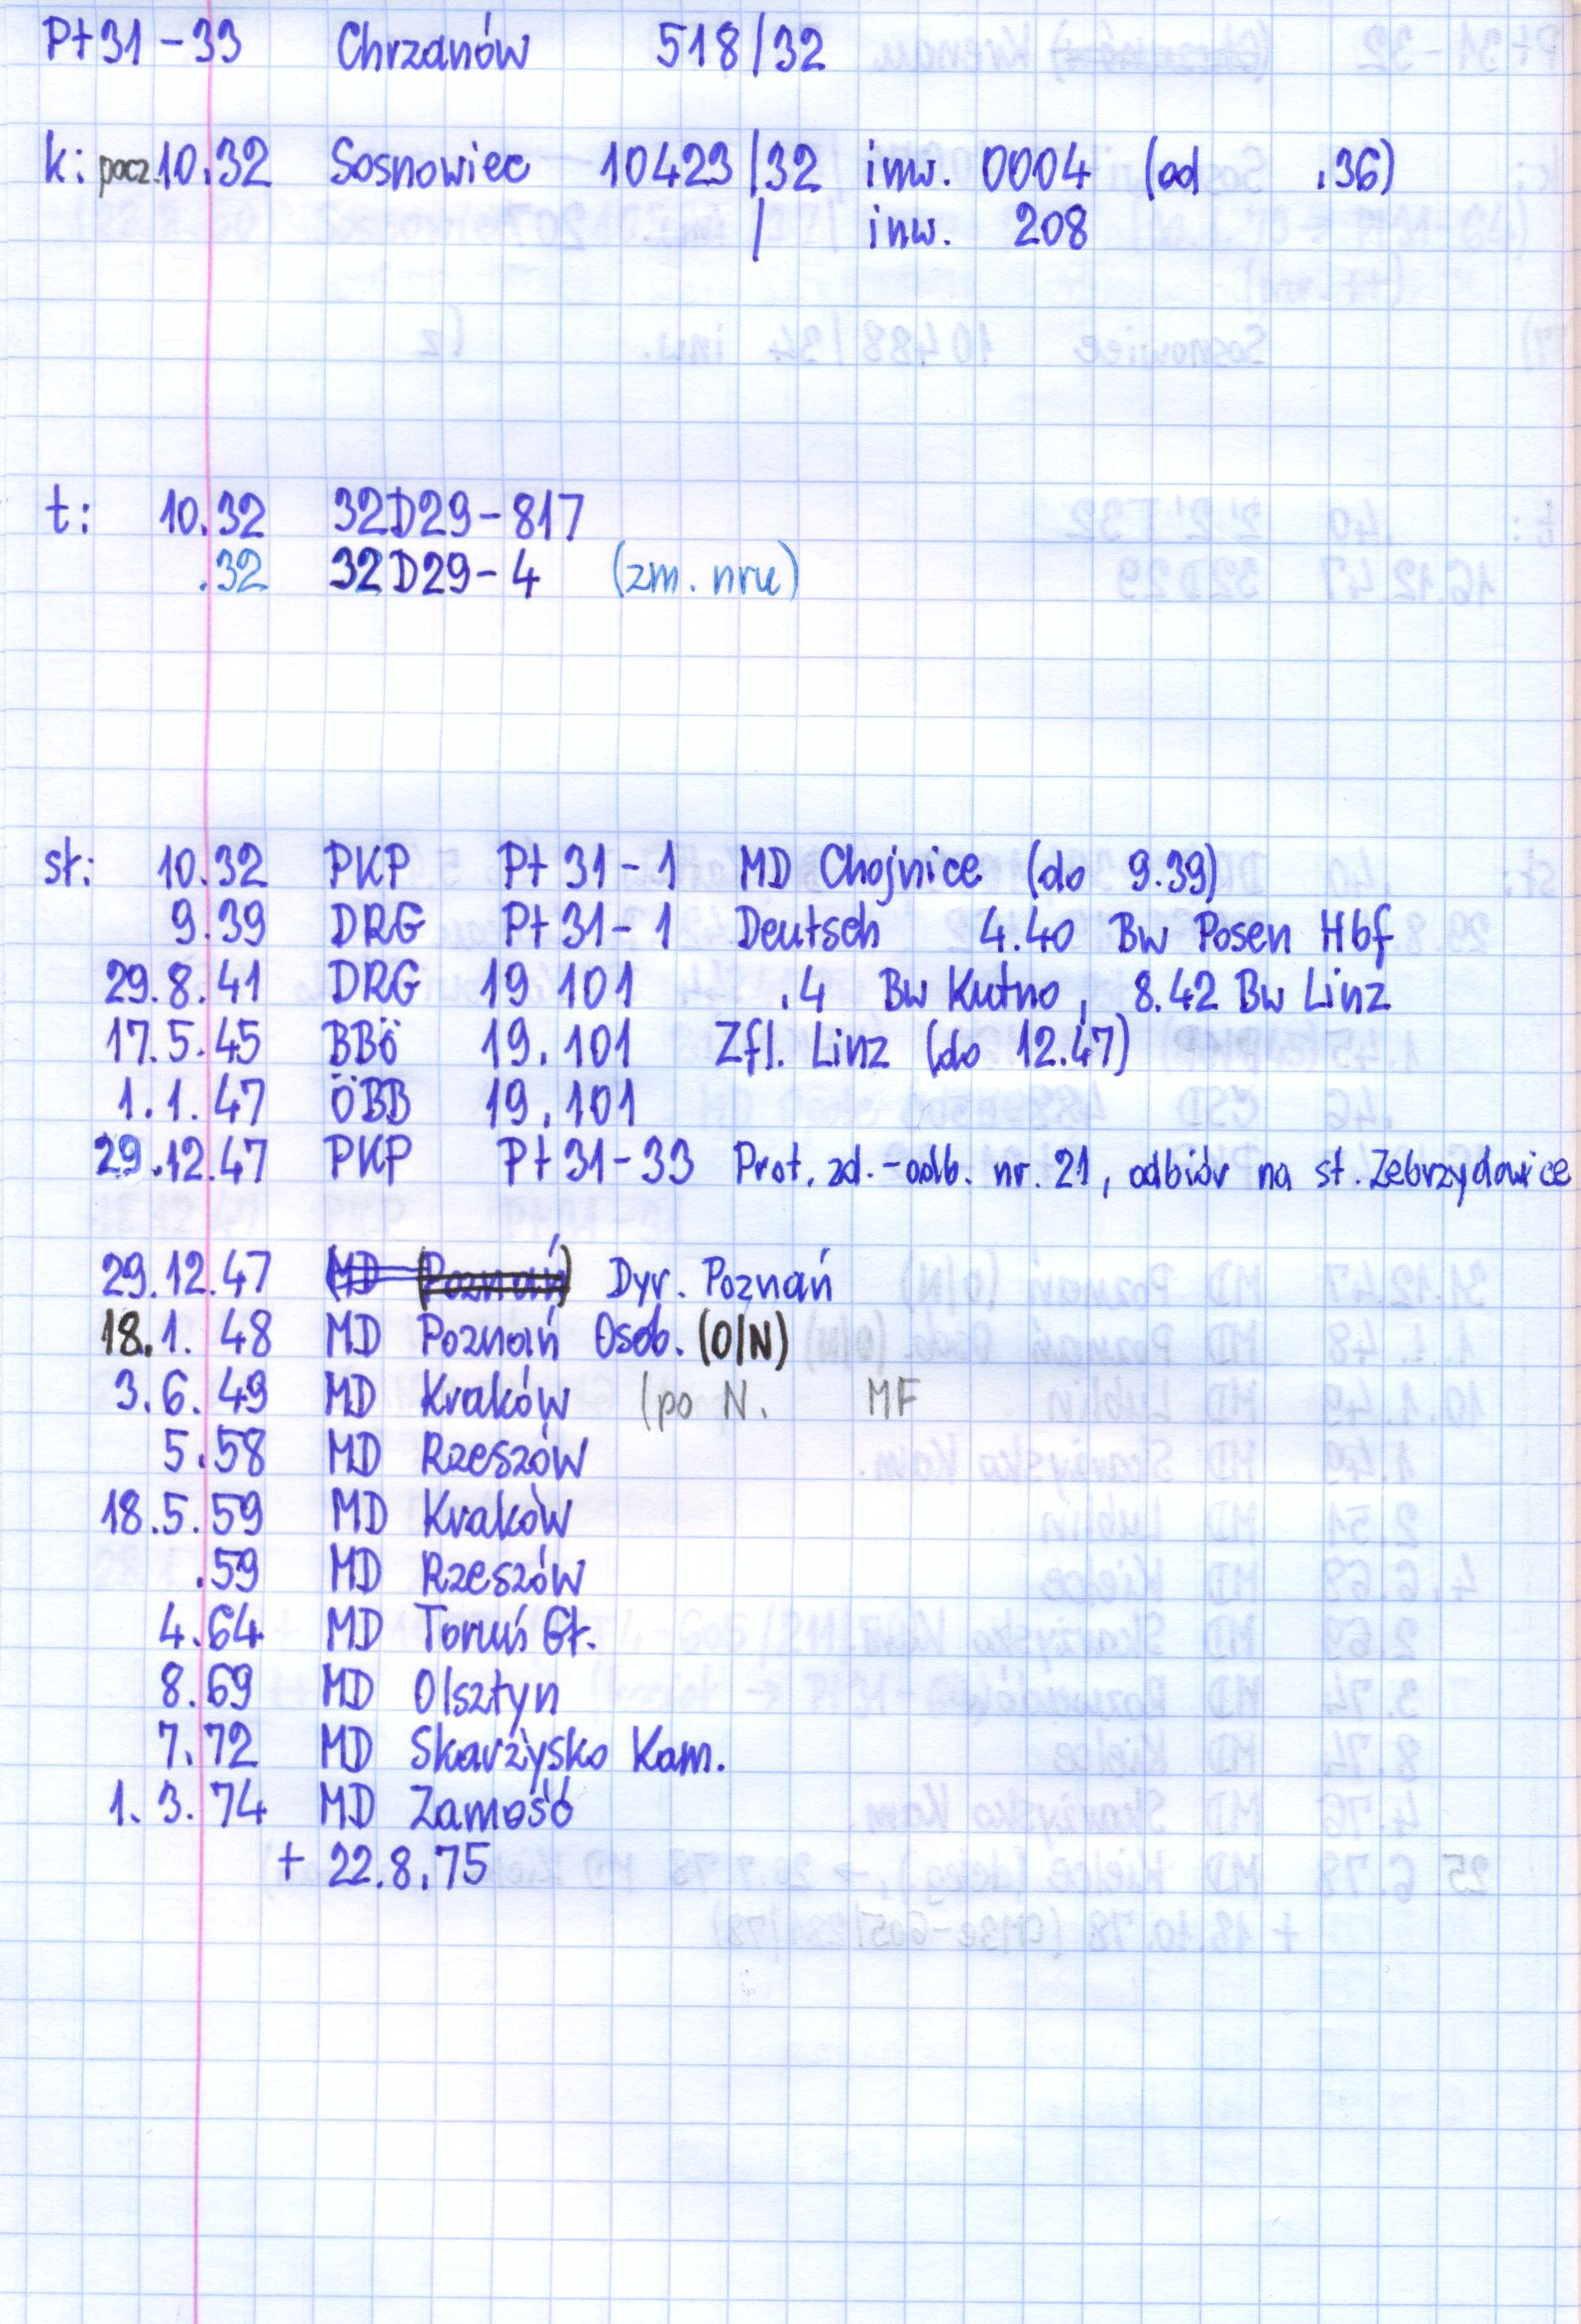 Pt31-33 Chrzanów 518/32
k: pocz. 10.32 Sosnowiec 10423/32 inw. 0004 (od .36)
/ inw. 208
t: 10.32 32D29-817
.32 32D29-4 (zm. nru)
st: 10.32 PKP Pt 31-1 MD Chojnice (do 9.39)
9.39 DRG Pt 31-1 Deutsch 4.40 Bw Posen Hbf
29.8.41 DRG 19 101 .4 Bw Kutno, 8.42 Bw Linz
17.5.45 BBÖ 19.101 Zfl. Linz (do 12.47)
1.1.47 ÖBB 19.101
29.12.47 PKP Pt 31-33 Prot. zd.-odb. nr. 21, odbiór na st. Zebrzydowice
29.12.47 (MD (Poznań) Dyr. Poznań
18.1.48 MD Poznań Osob. (O/N)
3.6.49 MD Kraków (po N. MF
5.58 MD Rzeszów
18.5.59 MD Kraków
.59 MD Rzeszów
4.64 MD Toruń Gł.
8.69 MD Olsztyn
7.72 MD Skarżysko Kam.
1.3.74 MD Zamość
+ 22.8.75